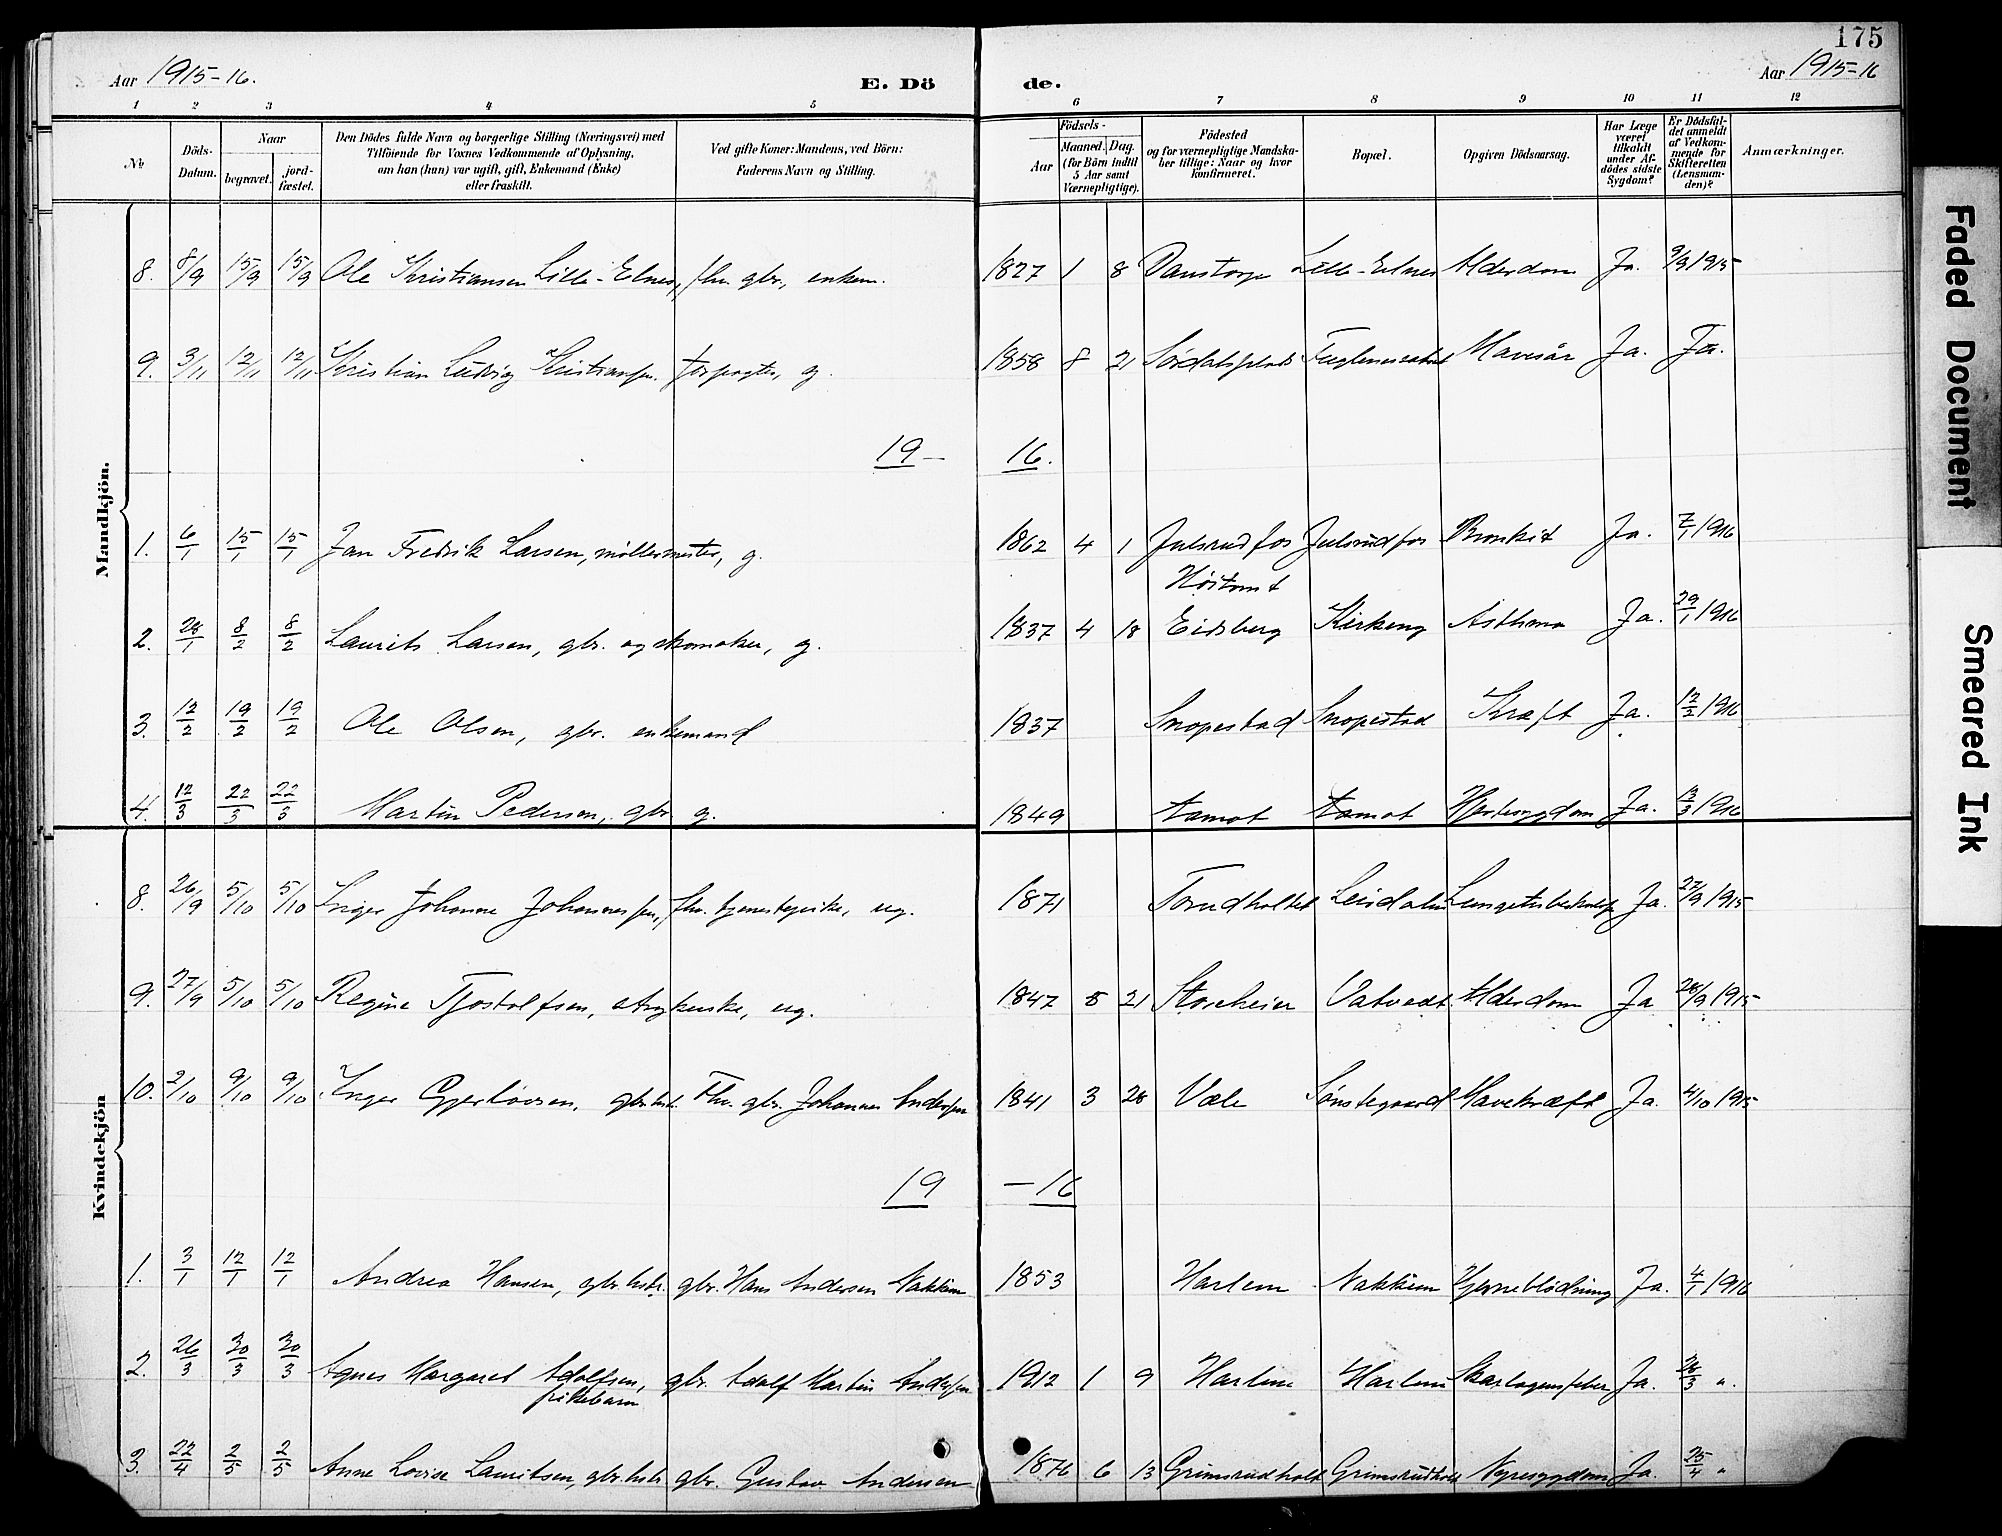 175
Aar 1915-16.
E. Dö
de.
Aar 1915-16
1 2 3 4 5 6 7 8 9 10 11 12
No
Döds-Datum.
Naar
begravet.
jord-fæstet.
Den Dödes fulde Navn og borgerlige Stilling (Næringsvei) med
Tilföiende for Voxnes Vedkommende af Oplysning,
om han (hun) var ugift, gift, Enkemand (Enke)
eller fraskilt.
Ved gifte Koner: Mandens, ved Börn:
Faderens Navn og Stilling.
Födsels-
Aar
Maaned. Dag.
(for Börn indtil
5 Aar samt
Værnepligtige).
Födested
og for værnepligtige Mandska-
ber tillige: Naar og hvor
konfirmeret.
Bopæl.
Opgiven Dödsaarsag.
Har Læge
været
tilkaldt
under Af-
dödes sidste
Sygdom?
Er Dödsfal-
det anmeldt
af Vedkom-
mende for
Skifteretten
(Lensman-
den)?
Anmærkninger.
Mandkjön.
8. 8/9 15/9 15/9 Ole Kristiansen Lille-Elnes, fhv. gbr., enkem. 1827 1 8 Vanstorp Lille-Elnes Alderdom Ja. 9/9 1915
9. 3/11 12/11 12/11 Kristian Ludvig Kristiansen. forpagter, g. 1858 8 21 Mavesår Ja. Ja.
19- 16.
1. 6/1 15/1 15/1 Jan Fredrik Larsen, møllermester, g. 1862 4 1 Julsrudfos Julsrudfos Bronkit Ja. 7/1 1916
2. 28/1 8/2 8/2 Laurits Larsen, gbr. og skomaker, g. 1837 4 18 Eidsberg Kirkeng Asthma Ja. 29/1 1916
3. 12/2 19/2 19/2 Ole Olsen, gbr. enkemand 1837 Snopestad Snopestad Kræft Ja. 12/2 1916
4. 12/3 22/3 22/3 Martin Pedersen, gbr. g. 1849 Aamot Aamot Hjertesygdom Ja. 13/3 1916
Kvindekjön
8. 26/9 5/10 5/10 Inger Johanne Johannessen, fhv. tjenestepike, ug. 1871 Torudholtet Ja. 27/9 1915
9. 27/9 5/10 5/10 Regine Tjostolfsen, ug. 1847 8 21 Storeheier Vatvedt Alderdom Ja 28/9 1915
10. 2/10 9/10 9/10 Inger Gjertsen, gbr.hstr. Fhv. gbr. Johannes Andersen 1841 3 28 Væle Sønstegaard Mavekræft Ja. 4/10 1915
19 -16
1. 3/1 12/1 12/1 Andrea Hansen, gbr.hstr. gbr. Hans Andersen Nakkim 1853 Harlem Nakkim Hjerneblödning Ja. 4/1 1916
2. 26/3 30/3 30/3 Agnes Margaret Adolfsen, gbr. Adolf Martin Andersen 1912 1 9 Harlem Harlem Skarlagensfeber Ja. 28/3 "
pikebarn
3. 22/4 2/5 2/5 Anne Lovise Lauritsen, gbr.hstr. gbr. Gustav Andersen 1876 6 13 Grimsrudholt Grimsrudholt Nyresygdom Ja. 25/4 "
Faded Document
Smeared Ink